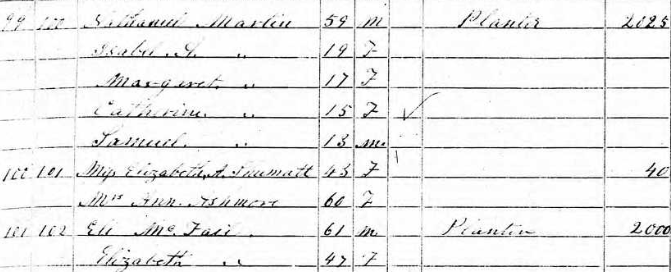 99 100 Nathaniel Martin 59 m Planter 2025
Isabel A. " 19 F
Margaret " 17 F
Catherine " 15 F ✓
Samuel " 13 m
100 101 Miss Elizabeth A. 45 F 40
Mrs Ann Ashmore 60 F
101 102 Eli Mc Fall 61 m Planter 2000
Elizabeth " 47 F